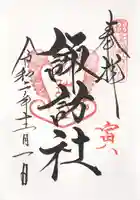 奉拝
寅
諏訪社
令和二年十一月一日